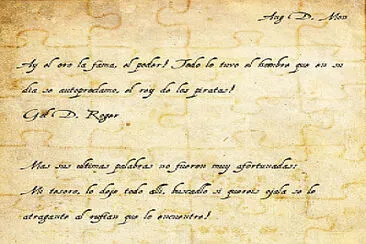 Ang D. Mon
Ay el oro la fama, el poder! Todo lo tuvo el hombre que en su
dia se autoproclamo, el rey de los piratas!
Gol D. Roger
Mas sus ultimas palabras no fueron muy afortunadas.
Mi tesoro, lo deje todo alli, buscadlo si quereis ojala se le
atragante al rufian que lo encuentre!